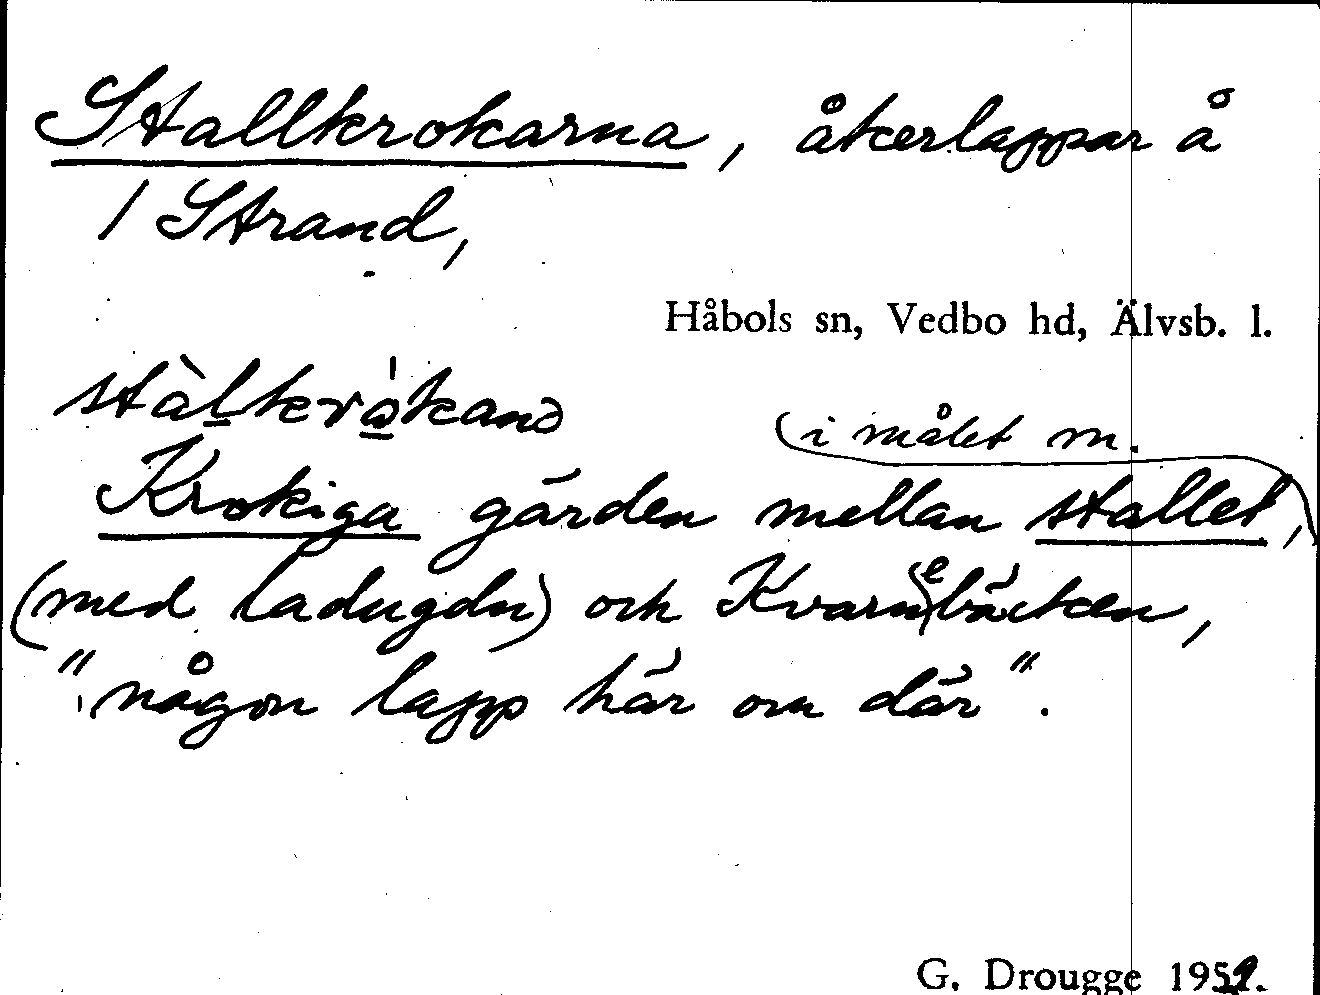 Stallkrokarna, åkerlappar å
/ Strand,
Håbols sn, Vedbo hd, Älvsb. l.
i målet m.
Krokiga gärden mellan stallet,
(med ladugdn) och Kvarn(e)bäcken,
"någon lapp här om där".
G. Drougge 1959.